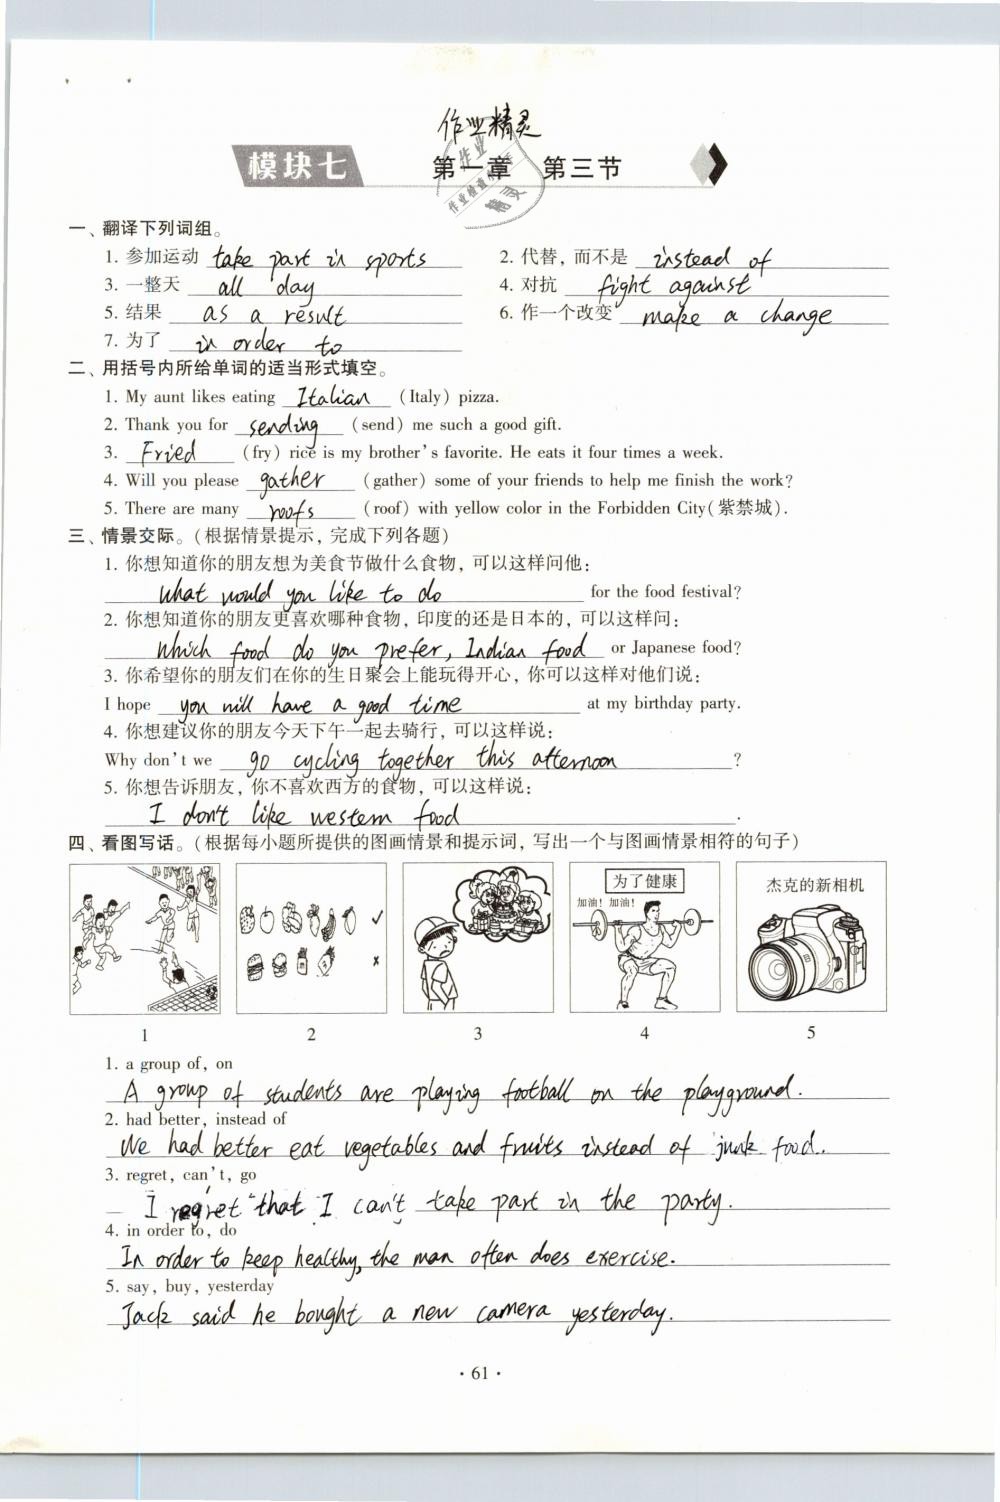 作业精灵
模块七 第一章 第三节
作业
作业检查小助手
精灵
一、翻译下列词组。
1. 参加运动 take part in sports 2. 代替，而不是 instead of
3. 一整天 all day 4. 对抗 fight against
5. 结果 as a result 6. 作一个改变 make a change
7. 为了 in order to
二、用括号内所给单词的适当形式填空。
1. My aunt likes eating Italian (Italy) pizza.
2. Thank you for sending (send) me such a good gift.
3. Fried (fry) rice is my brother's favorite. He eats it four times a week.
4. Will you please gather (gather) some of your friends to help me finish the work?
5. There are many roofs (roof) with yellow color in the Forbidden City(紫禁城).
三、情景交际。(根据情景提示，完成下列各题)
1. 你想知道你的朋友想为美食节做什么食物，可以这样问他:
What would you like to do for the food festival?
2. 你想知道你的朋友更喜欢哪种食物，印度的还是日本的，可以这样问:
Which food do you prefer, Indian food or Japanese food?
3. 你希望你的朋友们在你的生日聚会上能玩得开心，你可以这样对他们说:
I hope you will have a good time at my birthday party.
4. 你想建议你的朋友今天下午一起去骑行，可以这样说:
Why don't we go cycling together this afternoon ?
5. 你想告诉朋友，你不喜欢西方的食物，可以这样说:
I don't like western food .
四、看图写话。(根据每小题所提供的图画情景和提示词，写出一个与图画情景相符的句子)
为了健康
加油! 加油!
杰克的新相机
1 2 3 4 5
1. a group of, on
A group of students are playing football on the playground.
2. had better, instead of
We had better eat vegetables and fruits instead of junk food.
3. regret, can't, go
I regret that I can't take part in the party.
4. in order to, do
In order to keep healthy, the man often does exercise.
5. say, buy, yesterday
Jack said he bought a new camera yesterday.
· 61 ·